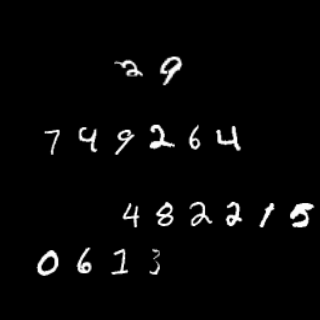 29
749264
482215
0613